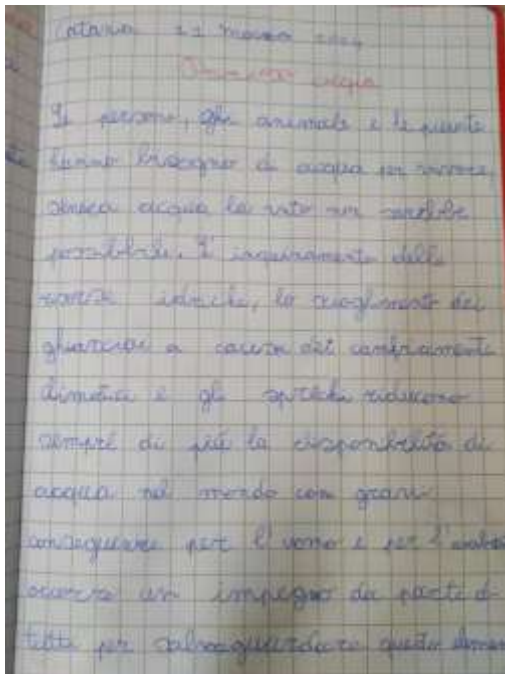 Catania 22 marzo 2024
acqua
Le persone, gli animali e le piante
hanno bisogno di acqua per vivere,
senza acqua la vita non sarebbe
possibile. L'inquinamento delle
risorse idriche, lo scioglimento dei
ghiacciai a causa dei cambiamenti
climatici e gli sprechi riducono
sempre di più la disponibilità di
acqua nel mondo con gravi
conseguenze per l'uomo e per l'
occorre un impegno da parte di
tutti per salvaguardare questo